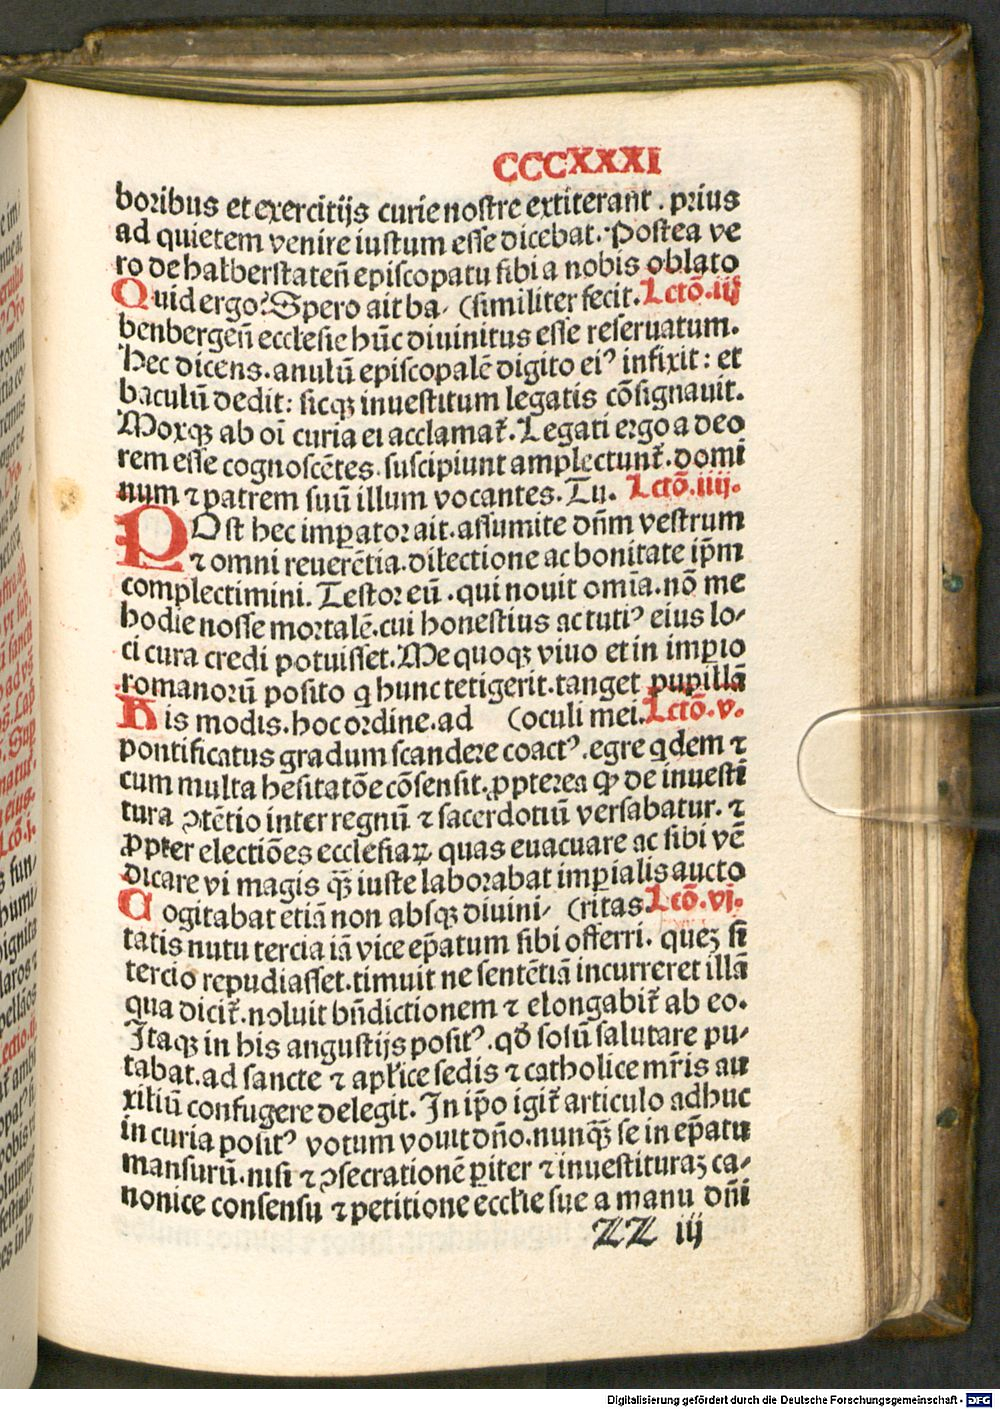 CCCXXXI
boribus et exercitijs curie nostre extiterant . prius
ad quietem venire iustum esse dicebat. Postea ve
ro de halberstateñ episcopatu sibi a nobis oblato
Quid ergo? Spero ait ba- (similiter fecit. Lctõ.iij
benbergeñ ecclesie hũc diuinitus esse reseruatum.
Hec dicens. anulũ episcopalẽ digito eiꝰ infixit: et
baculũ dedit: sicqꝫ inuestitum legatis cõsignauit.
Moxqꝫ ab oĩ curia ei acclamat᷑. Legati ergo a deo
rem esse cognoscẽtes. suscipiunt amplectunt᷑. domi
num ⁊ patrem suũ illum vocantes. Tu. Lctõ.iiij.
POst hec imꝑator ait. assumite dñm vestrum
⁊ omni reuerẽtia. dilectione ac bonitate ip̃m
complectimini. Testor eũ . qui nouit omĩa. nõ me
hodie nosse mortalẽ. cui honestius ac tutiꝰ eius lo-
ci cura credi potuisset. Me quoqꝫ viuo et in imꝑio
romanorũ posito q hunc tetigerit. tanget pupillã
His modis. hoc ordine. ad (oculi mei. Lctõ.v.
pontificatus gradum scandere coactꝰ. egre qdem ⁊
cum multa hesitatõe cõsensit. ꝓpterea qꝫ de inuesti
tura ꝯtẽtio inter regnũ ⁊ sacerdotiũ versabatur. ⁊
ꝓpter electiões ecclesiaꝝ quas euacuare ac sibi vẽ
dicare vi magis qꝫ̃ iuste laborabat imꝑialis aucto
Cogitabat etiã non absqꝫ diuini- (ritas Lctõ.vj.
tatis nutu tercia iã vice ep̃atum sibi offerri. queꝫ si
tercio repudiasset. timuit ne sentẽtiã incurreret illã
qua dicit᷑. noluit bñdictionem ⁊ elongabit᷑ ab eo.
Itaqꝫ in his angustijs positꝰ. qđ solũ salutare pu-
tabat. ad sancte ⁊ apl'ice sedis ⁊ catholice mr̃is au
xiliũ confugere delegit. In ip̃o igit᷑ articulo adhuc
in curia positꝰ votum vouit dño. nunqꝫ̃ se in ep̃atu
mansurũ. nisi ⁊ ꝯsecrationẽ ꝑiter ⁊ inuestituraꝫ ca-
nonice consensu ⁊ petitione eccl'ie sue a manu dñi
ZZ iij
Digitalisierung gefördert durch die Deutsche Forschungsgemeinschaft - DFG